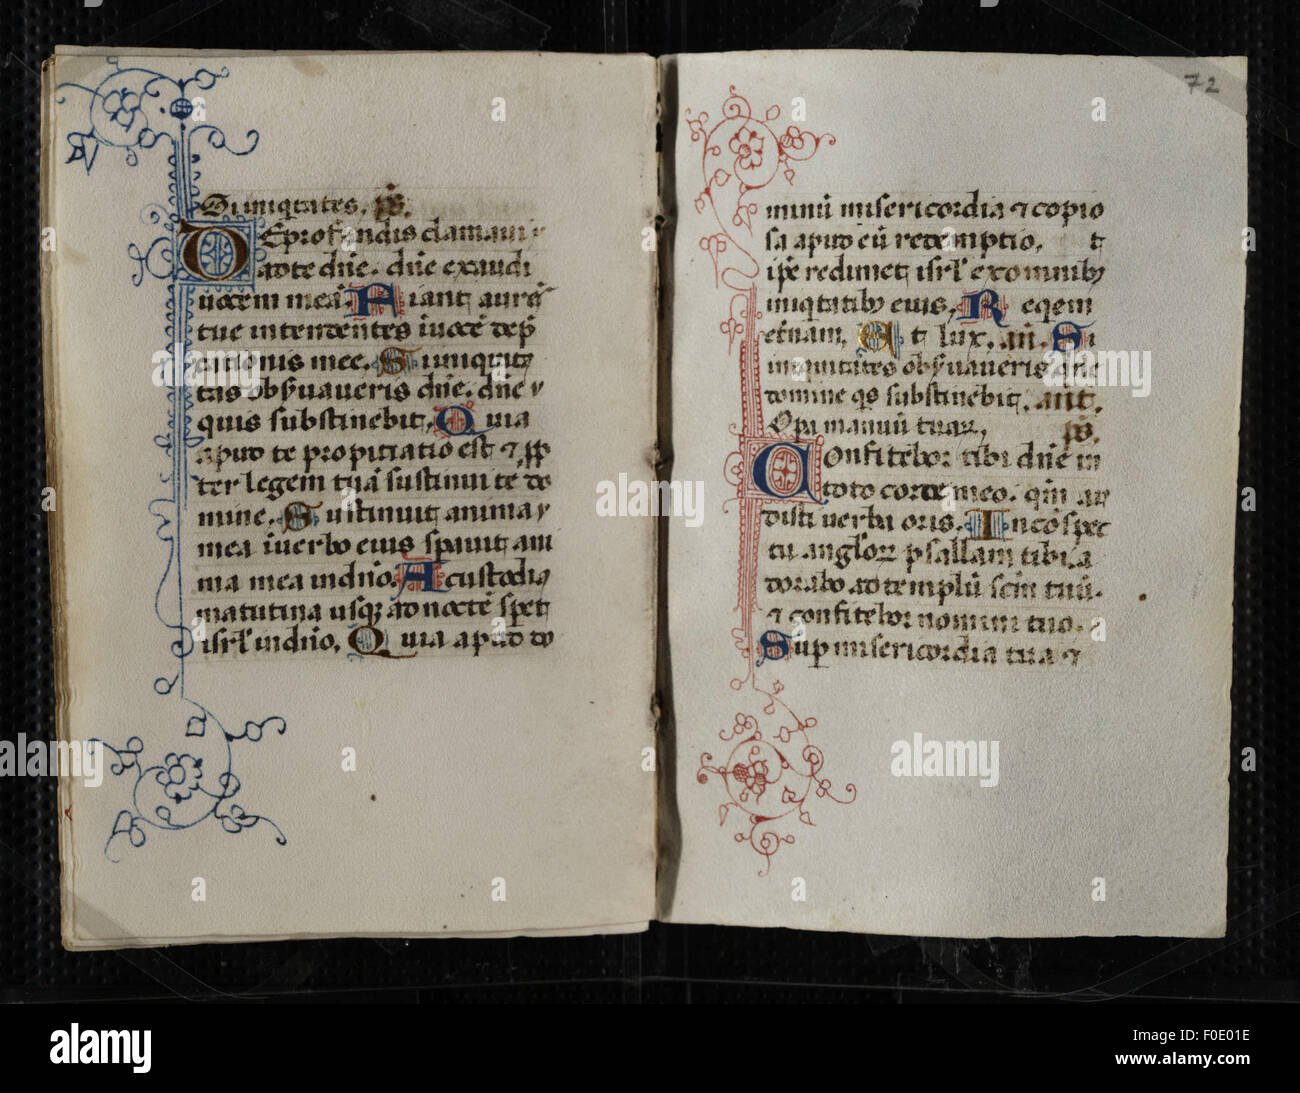 Si iniqtates. ps.
DEprofundis clamaui
ad te dñe. dñe exaudi
uocem meā. Fiant aures
tue intendentes ī uocē dep̄
cationis mee. Si iniqui
tas obs̄uaueris dñe. dñe
quis substinebit. Quia
apud te propitiatio est ⁊ ꝓp
ter legem tuā sustinui te do
mine. Sustinuit anima
mea ī uerbo eius spauit ani
ma mea in dño. A custodia
matutina usq; ad noctē speret
isrl̄ in dño. Quia apud do
72
minū misericordia ⁊ copio
sa apud eū redemptio. t
ip̄e redimet isrl̄ ex omnibꝫ
iniqtatibꝫ eius. Reqem
et̄nam. Et lux. añ. Si
iniquitates obs̄uaueris dñe
domine qs substinebit. ant.
Opa manuū tuaꝝ. ps.
COnfitebor tibi dñe in
toto corde meo. qm̄ au
disti uerba oris. In cōspec
tu angl̄oꝝ psallam tibi a
dorabo ad templū scm̄ tuū.
⁊ confitebor nomini tuo.
Sup misericordia tua ⁊
alamy
Image ID: F0E01E
www.alamy.com